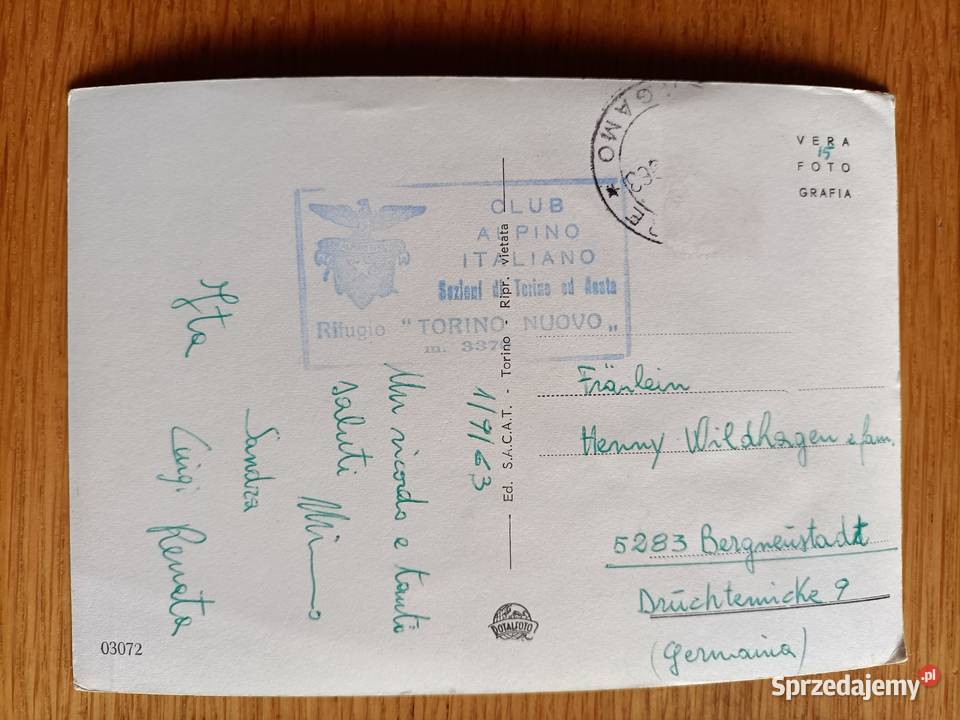 VERA
15
FOTO
GRAFIA
GAMO
CLUB
ALPINO
ITALIANO
Sezioni di Torino ed Aosta
Rifugio "TORINO NUOVO"
m. 337
1/9/63
Un ricordo e tanti
saluti
Sandra
Luigi Renata
Ed. S.A.C.A.T. - Torino - Ripr. vietata
Fräulein
Henny Wildhagen e fam.
5283 Bergneustadt
Drüchtemicke 9
(Germania)
ROTALFOTO
03072
Sprzedajemy.pl